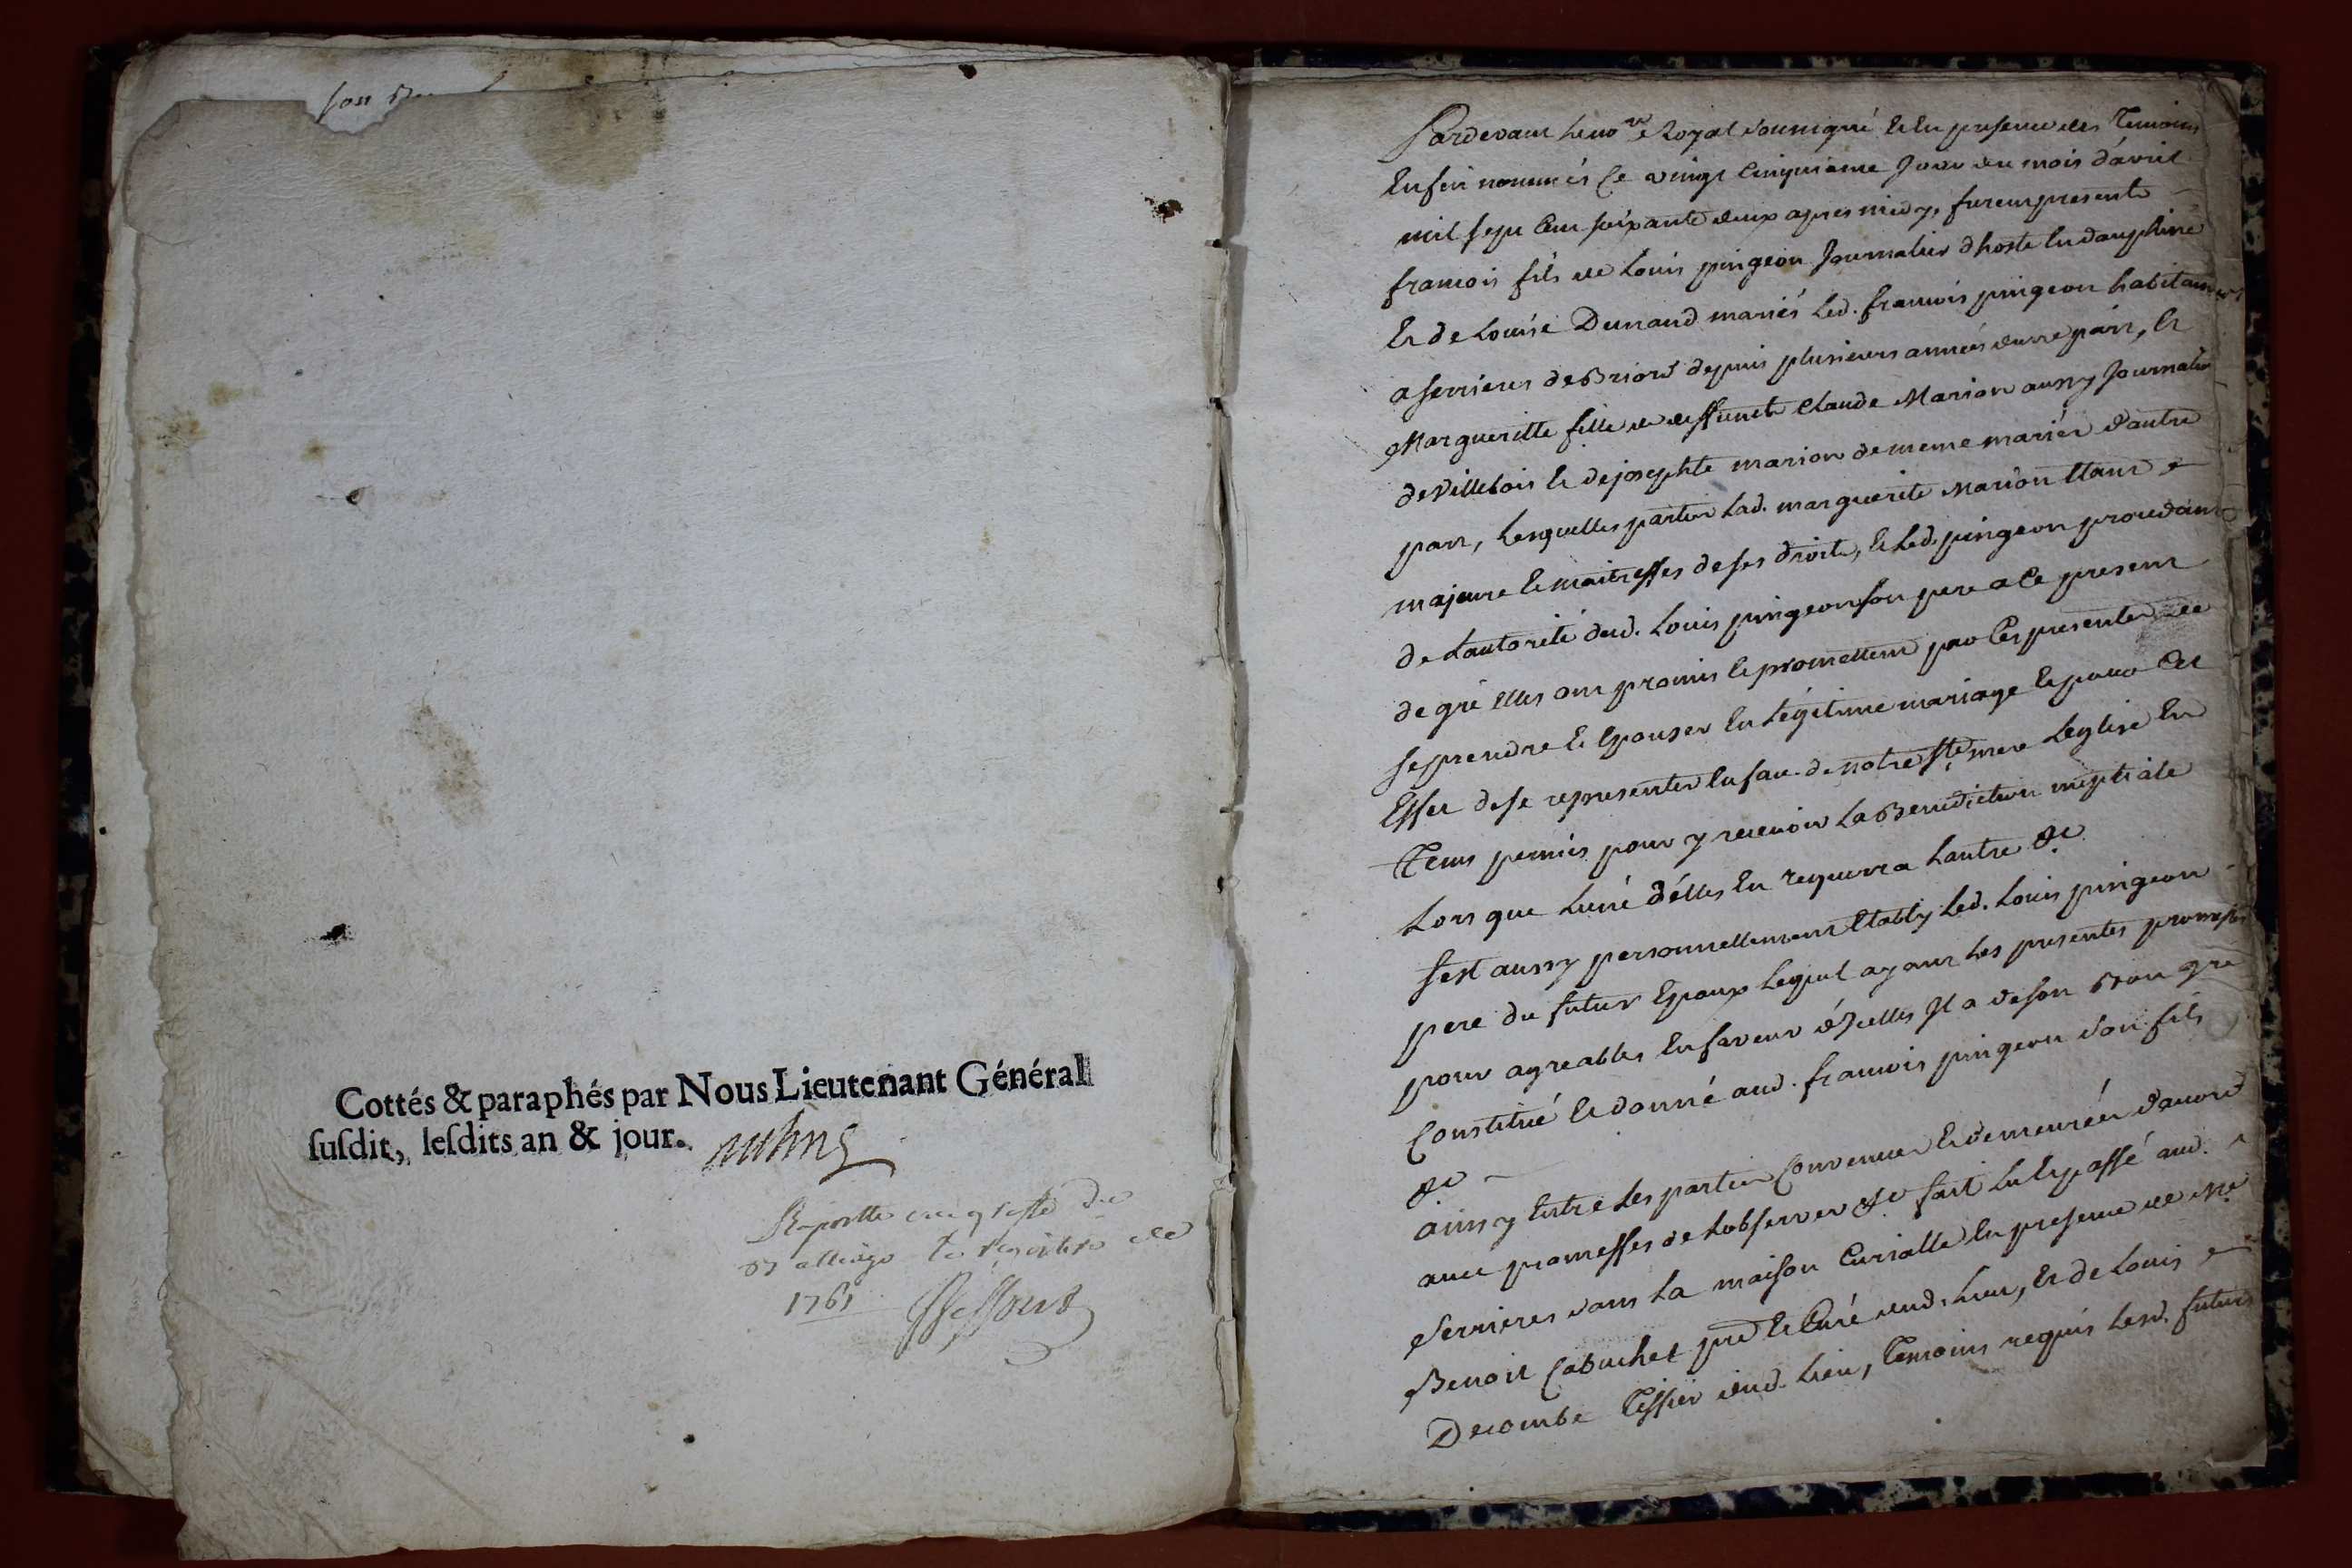 son
Cottés & paraphés par Nous Lieutenant Général
ſuſdit, leſdits an & jour.
Raportté au greffe du
Balliage le registre de
1761
Pardevant le no.re Royal soussigné et en presence des Temoins
enfin nommés Ce vingt Cinquieme Jour du mois d'avril
mil sept Cent soixante deux apres midy, furent presents
francois fils de Louis pingeon Journalier d'hoste en dauphiné
et de Louise Dunand mariés led. francois pingeon habitant
a serrieres de Briord depuis plusieurs années d'une part, et
Margueritte fille de deffunct Claude Marion aussy Journalier
de Villebois et de josephte marion de meme mariés d'autre
part, Lesquelles parties lad. marguerite Marion etant
majeure et maitresses de ses droits, et led. pingeon procedant
de L'autorité dud. Louis pingeon son pere a Ce present
de gré elles ont promis et promettent par Ces presentes de
se prendre et epouser en Légitime mariage et pour Cet
Effet de se representer en face de notre ste mere Leglise en
Tems permis pour y recevoir La Benediction nuptiale
Lors que L'une d'elles en requerra Lautre &c
s'est aussy personnellement etably led. Louis pingeon
pere du futur Epoux lequel ayant les presentes promesses
pour agreables en faveur d'Jcelles Jl a de son Bon gré
Constitué et donné aud. francois pingeon son fils
&c
ainsy entre les parties Convenues et demeurées d'acord
avec promesses de Lobserver &c fait lu et passé aud.
Serrieres dans la maison Curialle en presence de Me
Benoit Cabuchet pre et Curé dud. Lieu, et de Louis
Decombe Tessier dud. Lieu, Temoins requis Lesd. futurs